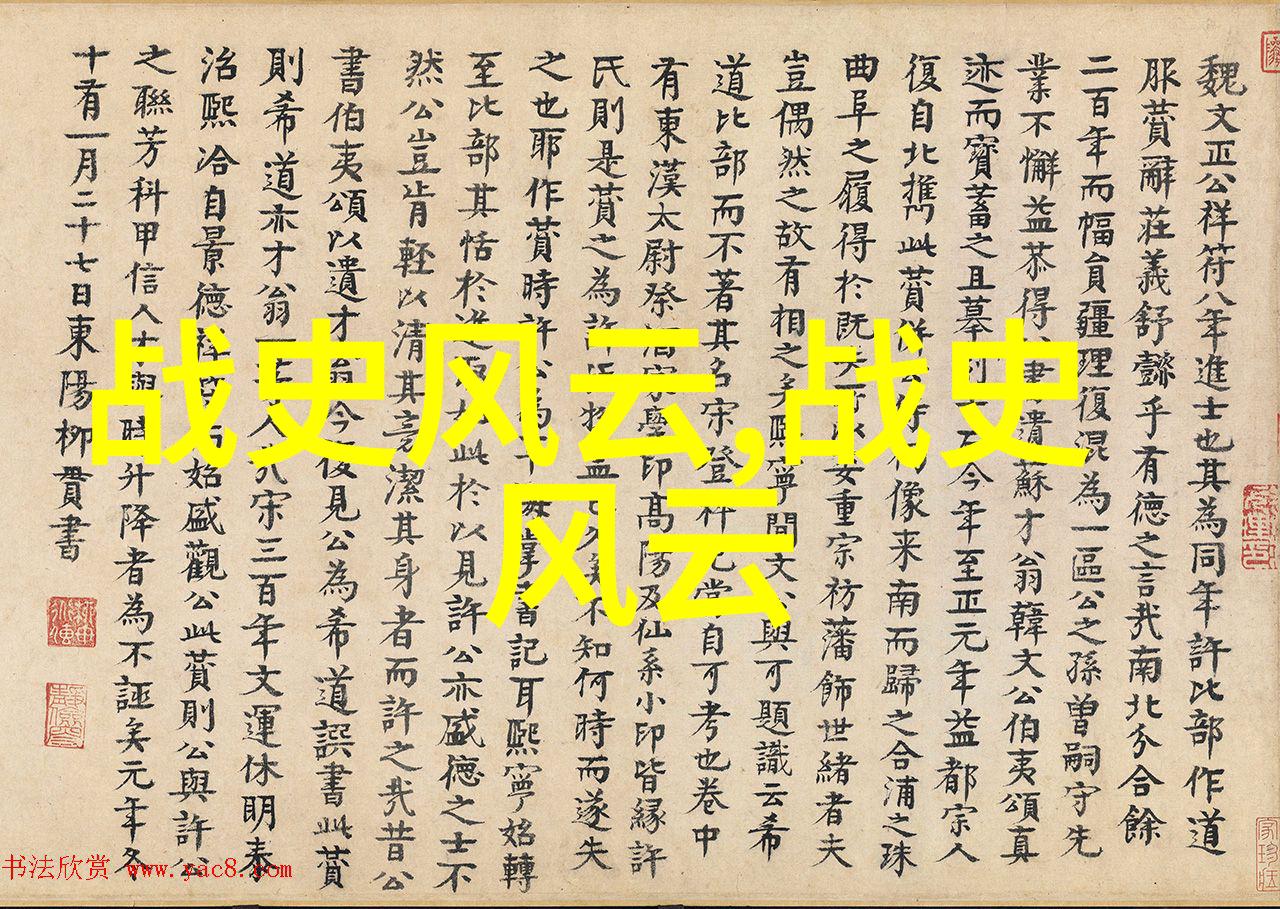 魏文正公祥符八年進士也其為同年許比部作道
服贊辭莊義舒懿乎有德之言哉南北分合餘
二百年而幅員疆理復混為一區公之孫曾嗣守先
業不懈益恭得書遺蘇才翁韓文公伯夷頌真
迹而寶蓄之且摹今年至正元年益都宗人
復自北攜此贊像来南而歸之合浦之珠
曲阜之履得於既失重宗祊藩飾世緒者夫
豈偶然之故有相之矣熙寧間文與可題識云希
道比部而不著其名宋登科自可考也卷中
有東漢太尉祭酒家學印高陽及仙系小印皆緣許
氏則是贊之為許氏物久矣不知何時而遂失
之也耶作贊時許公為記耳熙寧始轉
至比部其恬於進此於以見許公亦盛德之士不
然公豈肯輕以清其旁潔其身者而許之哉昔公
書伯夷頌以遺才翁今復見公為希道譔書此贊
則希道亦才翁人哉宋三百年文運休明泰
治熙洽自景德祥始盛觀公此贊則公與許公
之聯芳科甲信人士與時升降者為不誣矣元年冬
十有一月二十七日東陽柳貫書
战史风云,战史
风云
书法欣赏 www.yac8.com